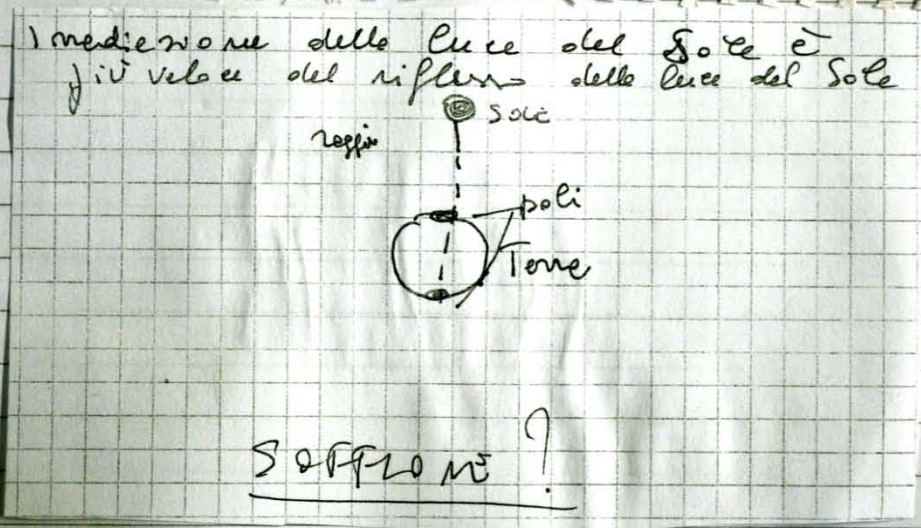 Irradiazione della luce del Sole è
più veloce del riflesso della luce del Sole
Sole
raggio
poli
Terra
SOFFIONE ?